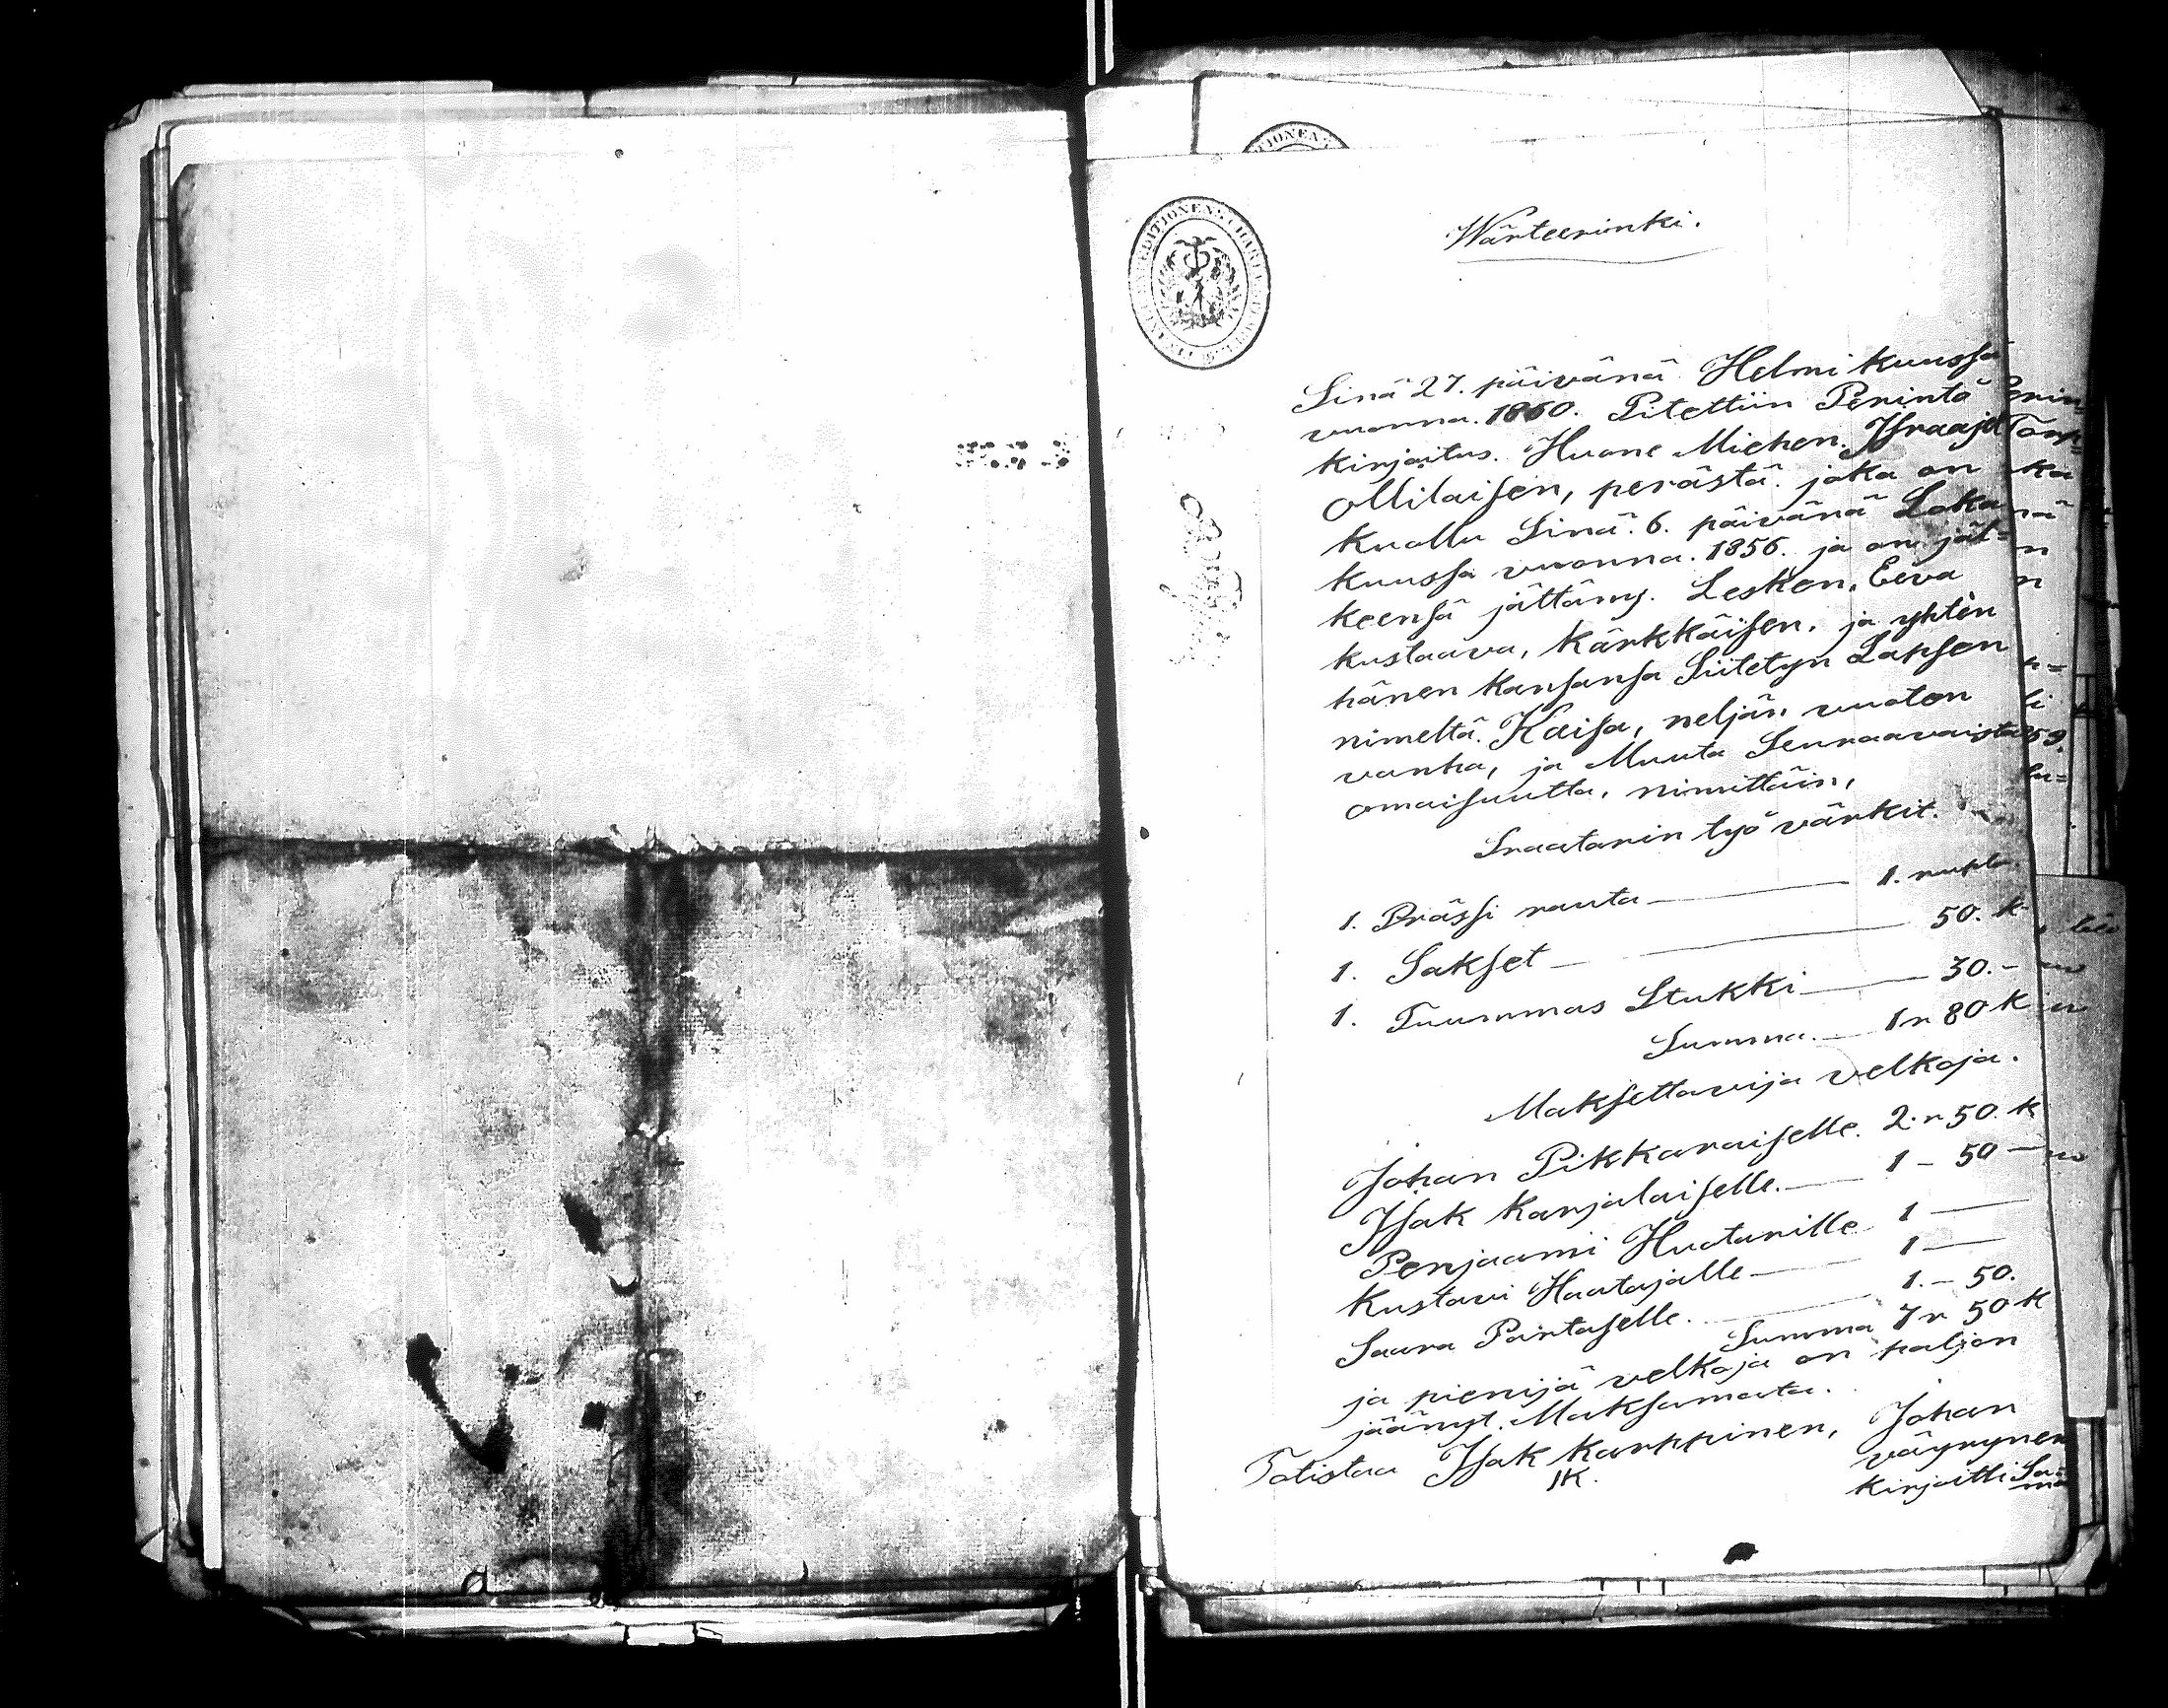 Wärteerinki.
Sinä 27. päivänä Helmi kuussa
vuonna. 1860. Pitettiin Perintö
kirjoitus. Huone Miehen. Israajel
Ollilaisen, perästä. joka on
kuollu Sinä. 6. päivänä Loka
kuussa vuonna. 1856. ja on jäl=
keensä jättäny. Lesken, Eeva
kustaava, Kärkkäisen. ja yhten
hänen kansansa Siitetyn Lapsen
nimeltä. Kaisa, neljän vuoten
vanha, ja Muuta Seuraavaista
omaisuutta, nimittäin,
Sraatarin työ värkit.
1. Prässi rauta — 1. rupla.
1. Sakset — 50. k
1. Tuummas Stukki — 30. -
Summa. — 1 r 80 k
Maksettavija velkoja.
Johan Pikkaraiselle. 2. r 50. k
Isak Karjalaiselle. — 1 - 50 —
Penjaami Huotarille 1 —
Kustavi Haatajalle — 1 —
Saara Partaselle. — 1. - 50.
Summa 7 r 50 k
ja pienijä velkoja on paljon
jäänyt. Maksamata.
Totistaa Isak Karppinen, Johan
IK. väyrynen
kirjoitti Sa=
ma